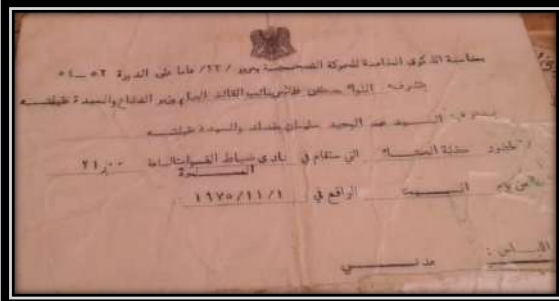 بمناسبة الذكرى الخامسة للحركة التصحيحية ومرور /٢٢/ عاما على الدورة ٥٢ – ٥٤
يتشرف اللواء نائب القائد العام وزير الدفاع والسيدة عقيلته
بدعوة السيد عبد سليمان والسيدة عقيلته
لحضور حفلة العشاء التي ستقام في نادي ضباط القوات المسلحة الساعة ٢١,٠٠
من يوم السبت الواقع في ١٩٧٥/١١/١
اللباس : مدني